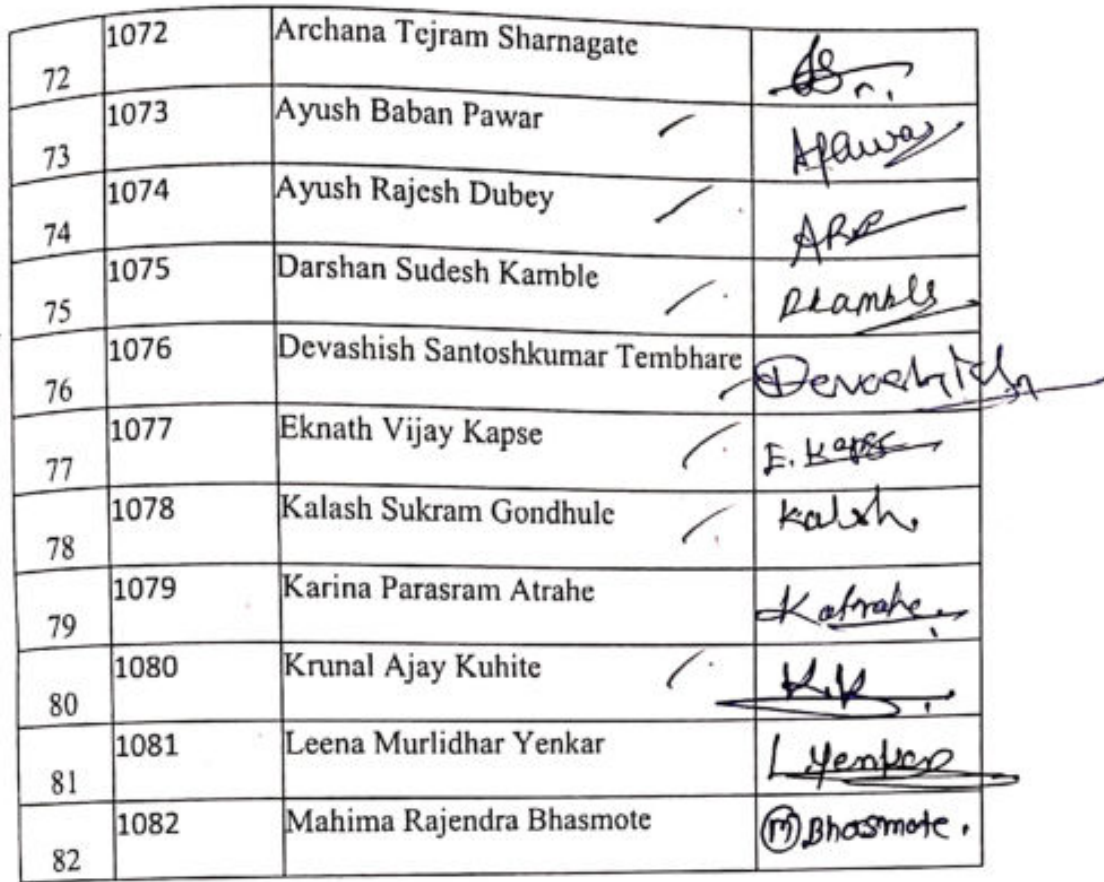 1072 Archana Tejram Sharnagate
72
1073 Ayush Baban Pawar APawar
73
1074 Ayush Rajesh Dubey
74
1075 Darshan Sudesh Kamble DKamble
75
1076 Devashish Santoshkumar Tembhare Devashish
76
1077 Eknath Vijay Kapse E. Kapse
77
1078 Kalash Sukram Gondhule Kalash
78
1079 Karina Parasram Atrahe Katrahe
79
1080 Krunal Ajay Kuhite K.K.
80
1081 Leena Murlidhar Yenkar L.Yenkar
81
1082 Mahima Rajendra Bhasmote M Bhasmote.
82